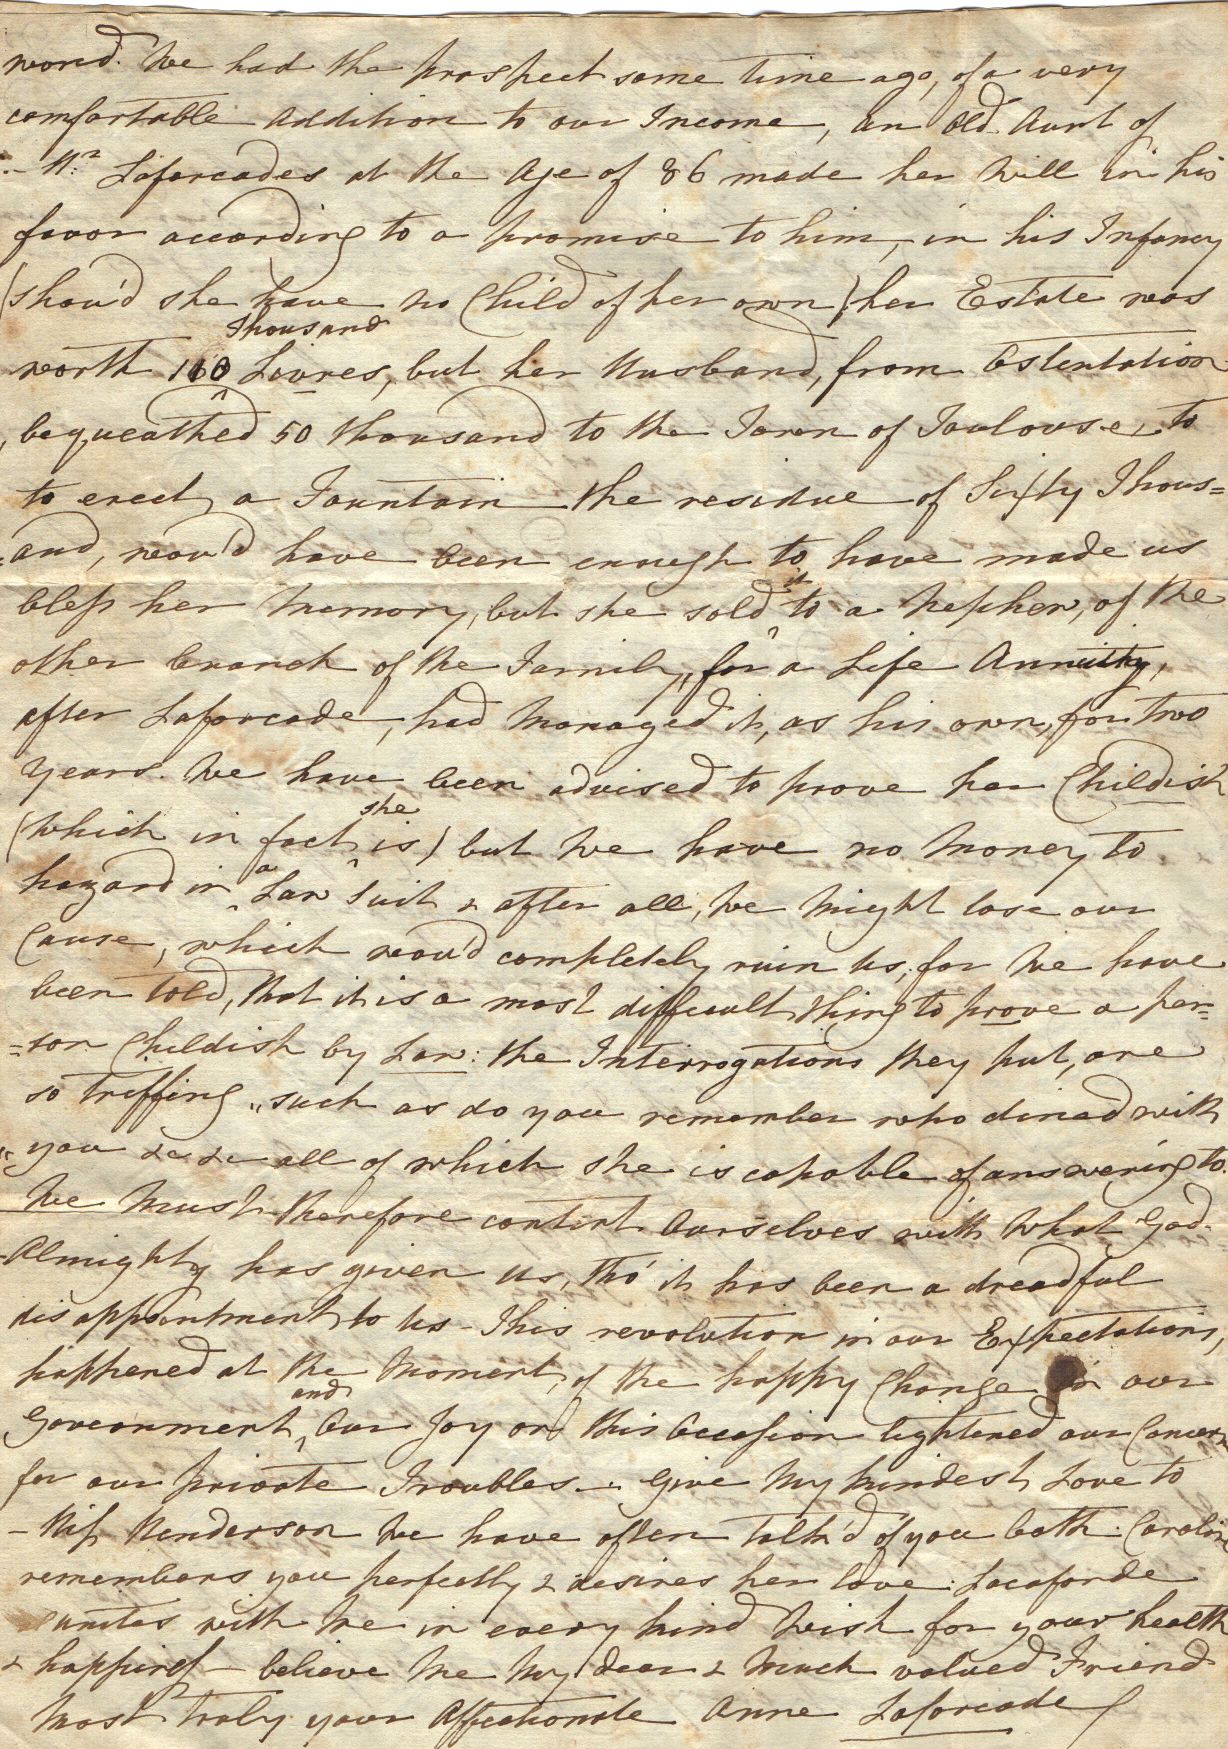 world. We had the prospect some time ago, of a very
comfortable Addition to our Income, an old Aunt of
- Mr. Laforcades at the Age of 86 made her Will in his
favor according to a promise to him, in his Infancy
(shou'd she have no Child of her own) her Estate was
worth 110 Thousand Livres, but her Husband, from Ostentation
bequeathed 50 thousand to the Town of Toulouse, to
to erect a Fountain the residue of Sixty Thous=
=and, wou'd have been enough to have made us
bless her Memory, but she sold it to a Nephew, of the
other branch of the Family, for a Life Annuity,
after Laforcade, had Managed it, as his own, for two
Years. We have been advised to prove her Childish
(which in fact she is) but We have no Money to
hazard in a Law Suit & after all, We Might lose our
Cause, which wou'd completely ruin Us, for We have
been told, that it is a most difficult thing to prove a per=
=son Childish by Law: the Interrogations they put, are
so triffing "such as do you remember who dined with
"you &c &c all of which she is capable of answering to.
We Must therefore content Ourselves with What God
Almighty has given Us, tho' it has been a dreadful
disappointment to Us - This revolution in our Expectations,
happened at the Moment, of the happy Change in our
Government, and Our Joy on this Occasion lightened our Concern
for our private Troubles. - Give My kindest Love to
- Miss Henderson We have often talk'd of you both: Caroline
remembers you perfectly & desires her love: Lacaforde
unites with Me in every kind Wish for your health
& happiness - believe Me My dear & Much valued Friend
Most truly your Affectionate Anne Laforcade